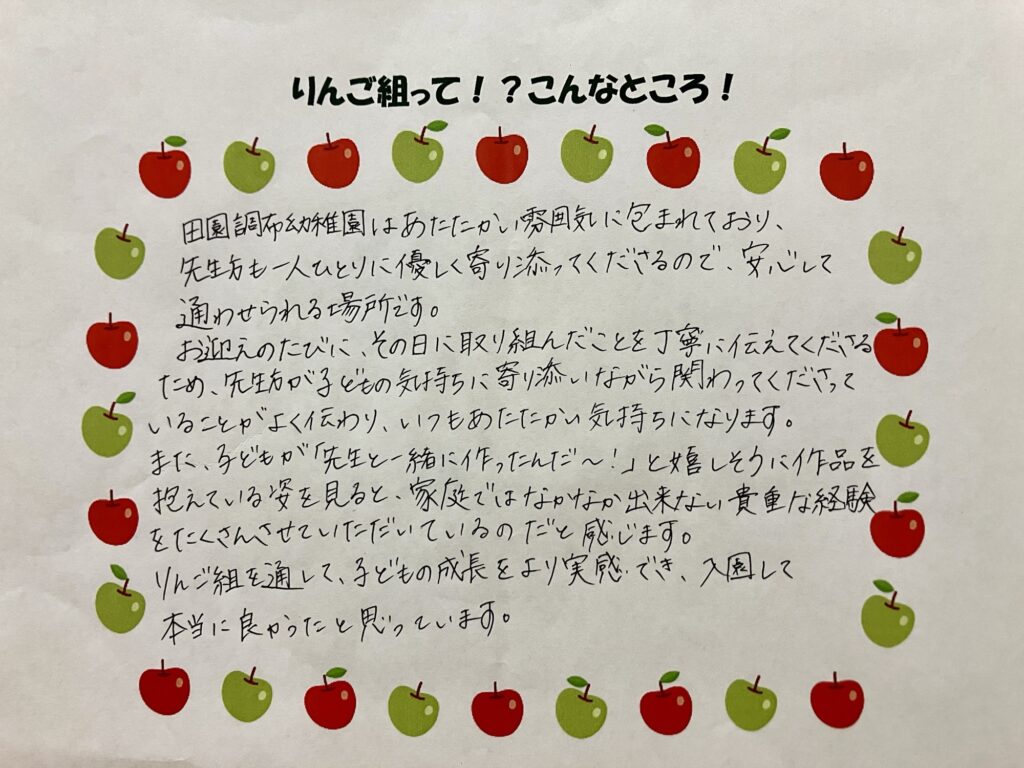 りんご組って！？こんなところ！
田園調布幼稚園はあたたかい雰囲気に包まれており、
先生方も一人ひとりに優しく寄り添ってくださるので、安心して
通わせられる場所です。
お迎えのたびに、その日に取り組んだことを丁寧に伝えてくださる
ため、先生方が子どもの気持ちに寄り添いながら関わってくださって
いることがよく伝わり、いつもあたたかい気持ちになります。
また、子どもが「先生と一緒に作ったんだ～！」と嬉しそうに作品を
抱えている姿を見ると、家庭ではなかなか出来ない貴重な経験
をたくさんさせていただいているのだと感じます。
りんご組を通して、子どもの成長をより実感でき、入園して
本当に良かったと思っています。